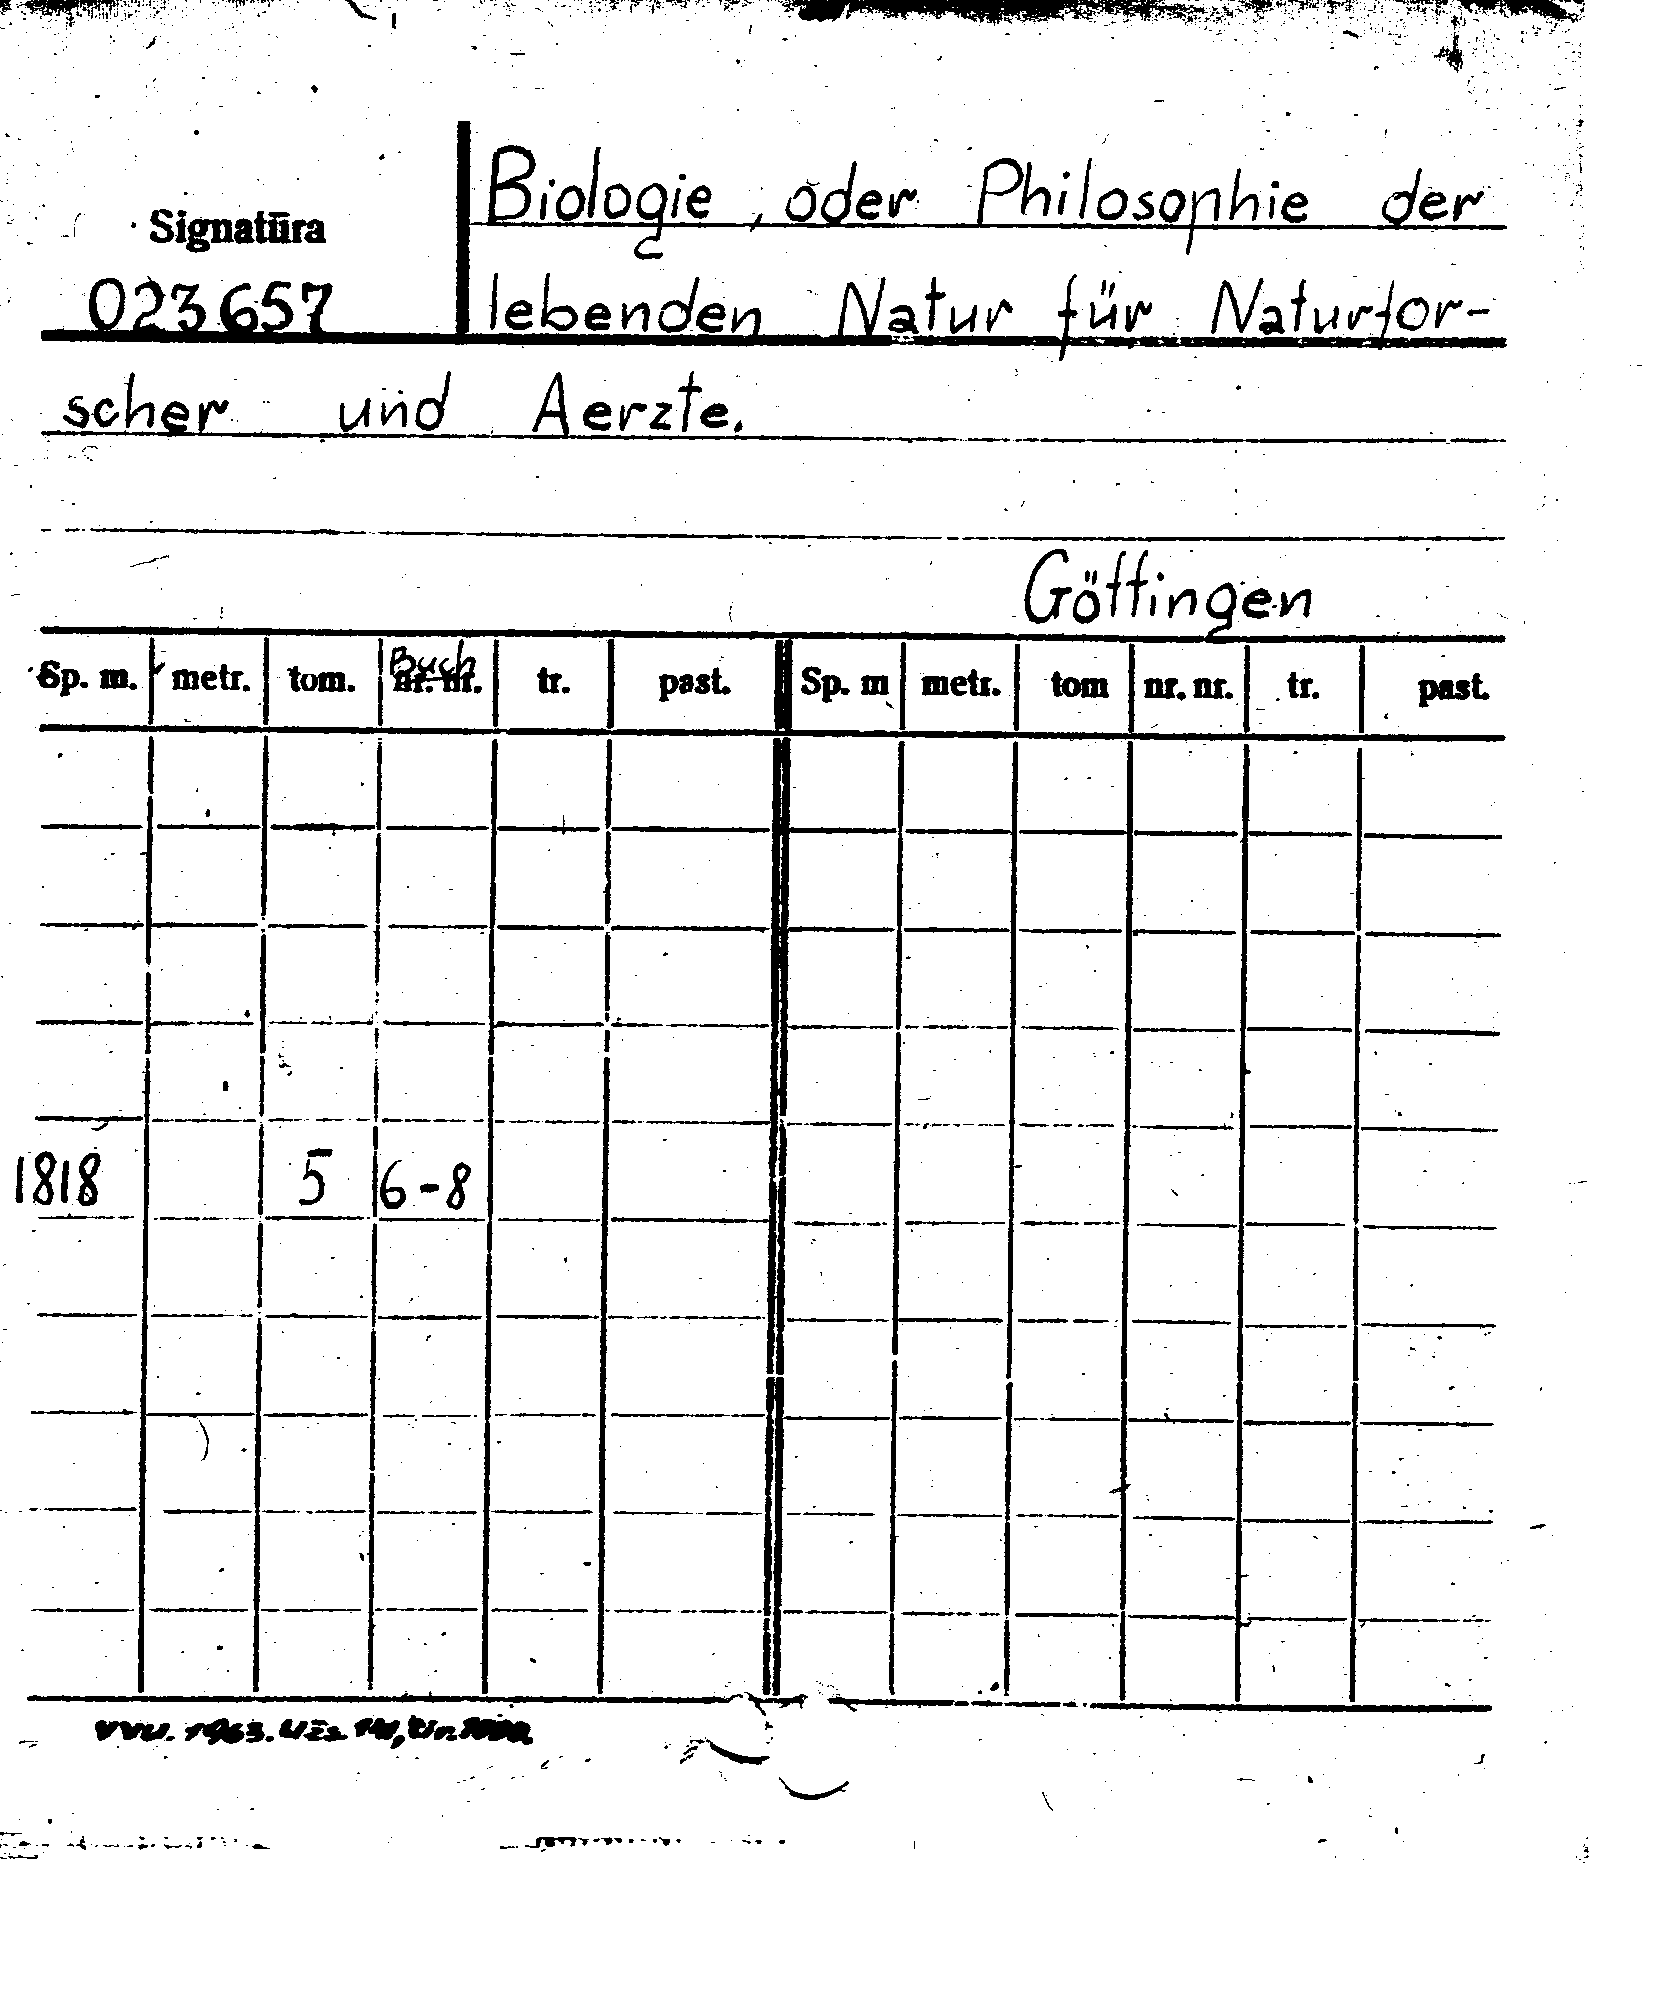 Biologie, oder Philosophie der
Signatūra
023657
lebenden Natur für Naturfor-
scher und Aerzte.
Göttingen
Sp. m. metr. tom. Buch nr. nr. tr. past. Sp. m metr. tom nr. nr. tr. past.
1818 5 6-8
VVU. 1963. Užs.